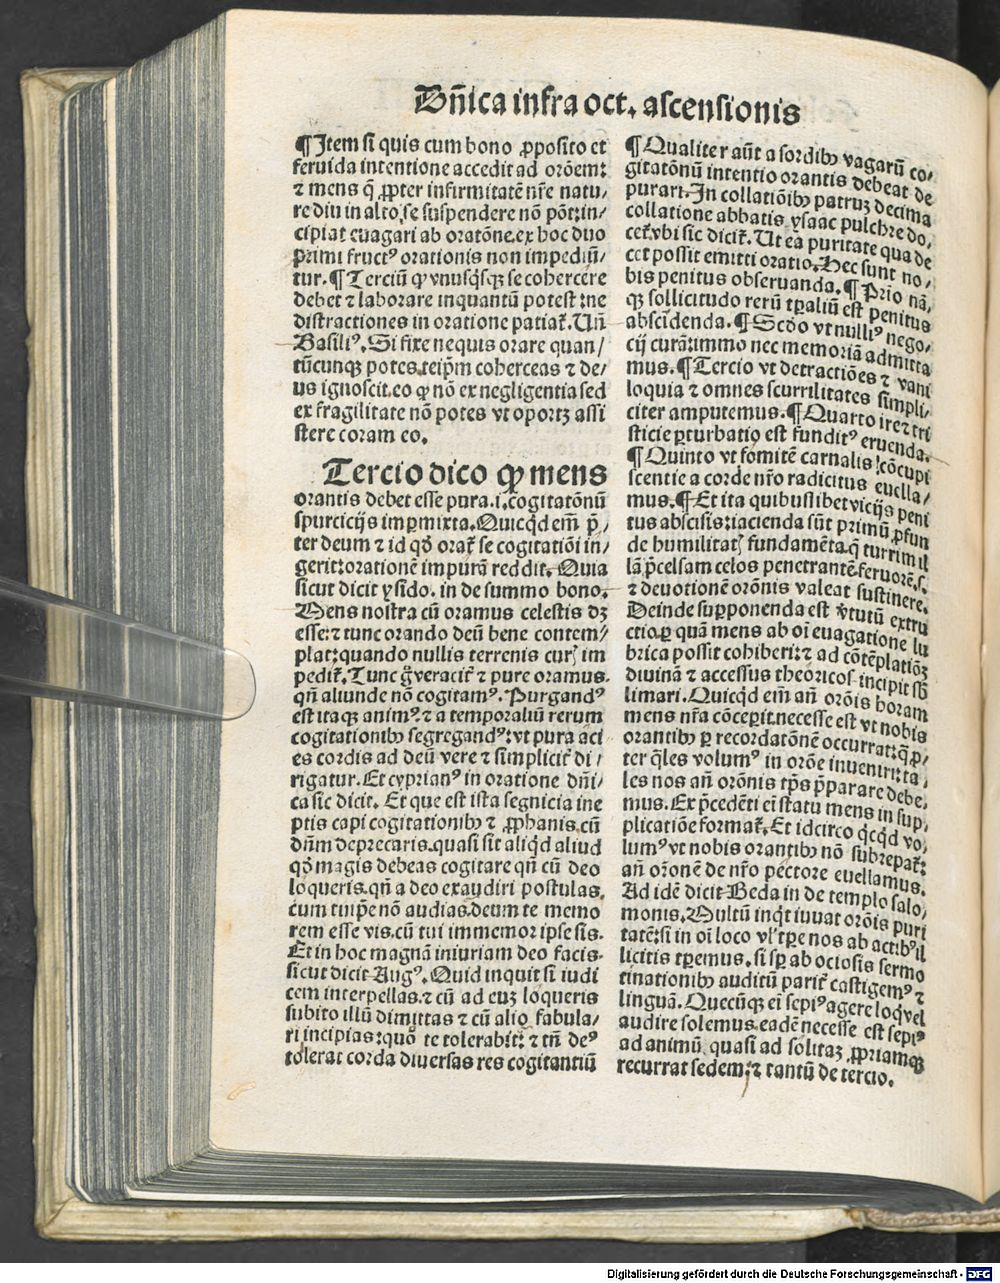 Dn̄ica infra oct. ascensionis
¶ Item si quis cum bono ꝓposito et
feruida intentione accedit ad orōem:
⁊ mens q̄ ꝓpter infirmitatē nr̄e natu/
re diu in alto se suspendere nō pōt: in/
cipiat euagari ab oratōne. ex hoc duo
primi fructꝰ orationis non impediū/
tur. ¶ Terciū ꝙ vnusq̇sqꝫ se cohercere
debet ⁊ laborare inquantū potest: ne
distractiones in oratione patiat̄. Un̄
Basiliꝰ. Si fixe nequis orare quan/
tūcunqꝫ potes. teip̄m coherceas ⁊ de/
us ignoscit. eo ꝙ nō ex negligentia sed
ex fragilitate nō potes vt oportꝫ assi
stere coram eo.
Tercio dico ꝙ mens
orantis debet esse pura. i. cogitatōnū
spurcicijs imꝑmixta. Quicq̇d em̄ p̄/
ter deum ⁊ id qd̄ orat̄ se cogitatiōi in/
gerit: orationē impurā reddit. Quia
sicut dicit ysido. in de summo bono.
Mens nostra cū oramus celestis dꝫ
esse: ⁊ tunc orando deū bene contem/
plat: quando nullis terrenis curꝭ im
pedit̄. Tunc g̊ veracit̄ ⁊ pure oramus.
qn̄ aliunde nō cogitamꝰ. Purgandꝰ
est itaqꝫ animꝰ. ⁊ a temporaliū rerum
cogitationibꝫ segregandꝰ: vt pura aci
es cordis ad deū vere ⁊ simplicit̄ di/
rigatur. Et cyprianꝰ in oratione dn̄i/
ca sic dicit. Et que est ista segnicia ine
ptis capi cogitationibꝫ ⁊ ꝓphanis. cū
dn̄m deprecaris. quasi sit aliq̇d aliud
qd̄ magis debeas cogitare qn̄ cū deo
loqueris. qn̄ a deo exaudiri postulas.
cum tuip̄e nō audias. deum te memo
rem esse vis. cū tui immemor ipse sis.
Et in hoc magnā iniuriam deo facis.
sicut dicit Augꝰ. Quid inquit si iudi
cem interpellas. ⁊ cū ad euꝫ loqueris
subito illū dimittas ⁊ cū alio fabula/
ri incipias: quō te tolerabit: ⁊ tn̄ deꝰ
tolerat corda diuersas res cogitantiū
¶ Qualiter aūt a sordibꝫ vagarū co/
gitatōnū intentio orantis debeat de
purari. In collatiōibꝫ patruꝫ decima
collatione abbatis ysaac pulchre do/
cet̄. vbi sic dicit̄. Ut ea puritate qua de
cet possit emitti oratio. Hec sunt no/
bis penitus obseruanda. ¶ Prīo nā/
qꝫ sollicitudo rerū tꝑaliū est penitus
abscidenda. ¶ Scd̄o vt nulliꝰ nego/
cij curā: immo nec memoriā admitta
mus. ¶ Tercio vt detractiōes ⁊ vani
loquia ⁊ omnes scurrilitates simpli/
citer amputemus. ¶ Quarto ire ⁊ tri
sticie ꝑturbatio est funditꝰ eruenda.
¶ Quinto vt fomitē carnalis cōcupi
scentie a corde nr̄o radicitus euella/
mus. ¶ Et ita quibuslibet vicijs peni
tus abscisis: iacienda sūt primū ꝓfun
de humilitatꝭ fundamēta. q̄ turrim il
lā p̄celsam celos penetrantē. feruorē. s.
⁊ deuotionē orōnis valeat sustinere.
Deinde suꝑponenda est v̄tutū extru
ctio. ꝑ quā mens ab oī euagatione lu
brica possit cohiberi: ⁊ ad cōtēplatiōꝫ
diuinā ⁊ accessus theoricos incipit sb̄
limari. Quicq̇d em̄ an̄ orōis horam
mens nr̄a cōceperit. necesse est vt nobis
orantibꝫ ꝑ recordatōnē occurrat: q̄ ꝓ/
ter q̄les volumꝰ in orōe inueniri: ta/
les nos an̄ orōnis tp̄s p̄parare debe/
mus. Ex p̄cedēti ei̅ statu mens in sup/
plicatiōe format̄. Et idcirco q̇cq̇d vo/
lumꝰ vt nobis orantibꝫ nō subrepat̄:
an̄ orōnē de nr̄o pectore euellamus.
Ad idē dicit Beda in de templo salo/
monis. Multū inq̇t iuuat orōis puri
tatē: si in oī loco vl' tp̄e nos ab actibꝰ il
licitis tꝑemus. si sp̄ ab ociosis sermo
tinationibꝫ auditū parit̄ castigemꝰ ⁊
linguā. Quecūqꝫ ei̅ sepiꝰ agere loq̇ vel
audire solemus. eadē necesse est sepiꝰ
ad animū quasi ad solitaꝫ ꝓpriamqꝫ
recurrat sedem: ⁊ tantū de tercio.
Digitalisierung gefördert durch die Deutsche Forschungsgemeinschaft - DFG